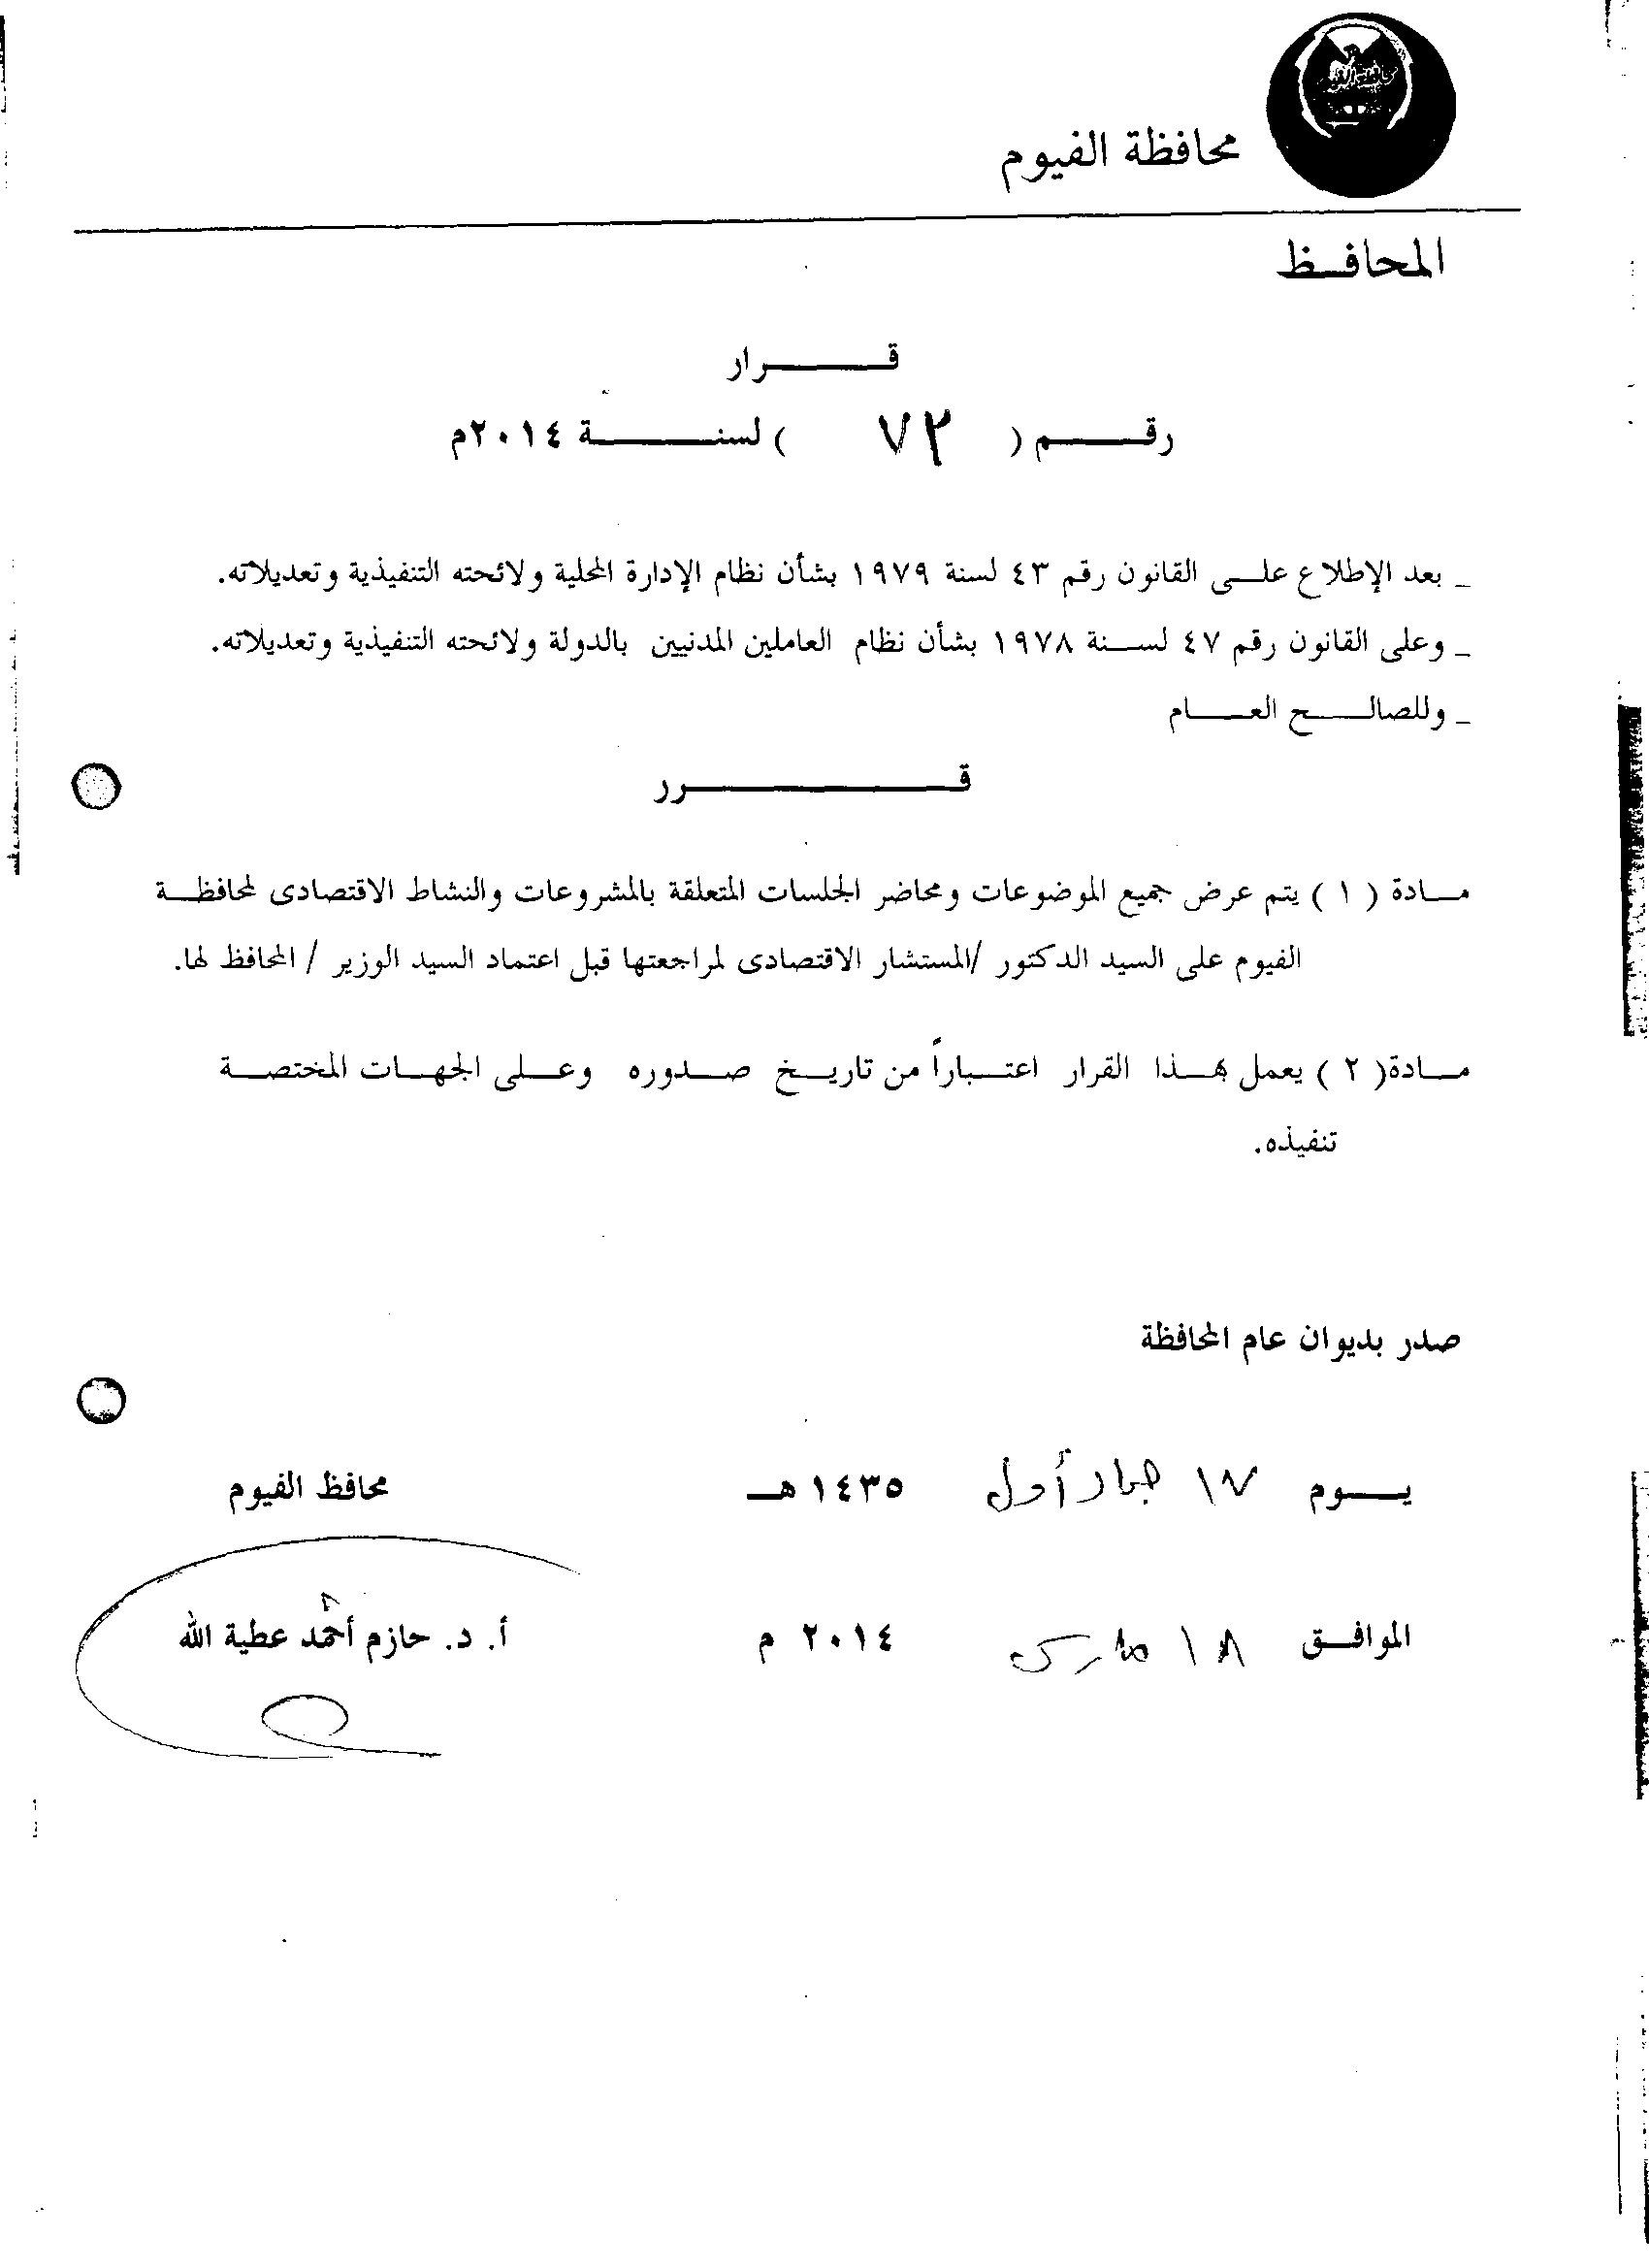 محافظة الفيوم
المحافظ
قرار
رقم ( ٧٢ ) لسنة ٢٠١٤م
_ بعد الإطلاع على القانون رقم ٤٣ لسنة ١٩٧٩ بشأن نظام الإدارة المحلية ولائحته التنفيذية وتعديلاته.
_ وعلى القانون رقم ٤٧ لسنة ١٩٧٨ بشأن نظام العاملين المدنيين بالدولة ولائحته التنفيذية وتعديلاته.
_ وللصالح العام
قرر
مادة ( ١ ) يتم عرض جميع الموضوعات ومحاضر الجلسات المتعلقة بالمشروعات والنشاط الاقتصادى لمحافظة
الفيوم على السيد الدكتور /المستشار الاقتصادى لمراجعتها قبل اعتماد السيد الوزير / المحافظ لها.
مادة( ٢ ) يعمل بهذا القرار اعتباراً من تاريخ صدوره وعلى الجهات المختصة
تنفيذه.
صدر بديوان عام المحافظة
يوم ١٧ جماد أول ١٤٣٥ هـ
محافظ الفيوم
الموافق ١٨ مارس ٢٠١٤ م
أ. د. حازم أحمد عطية الله